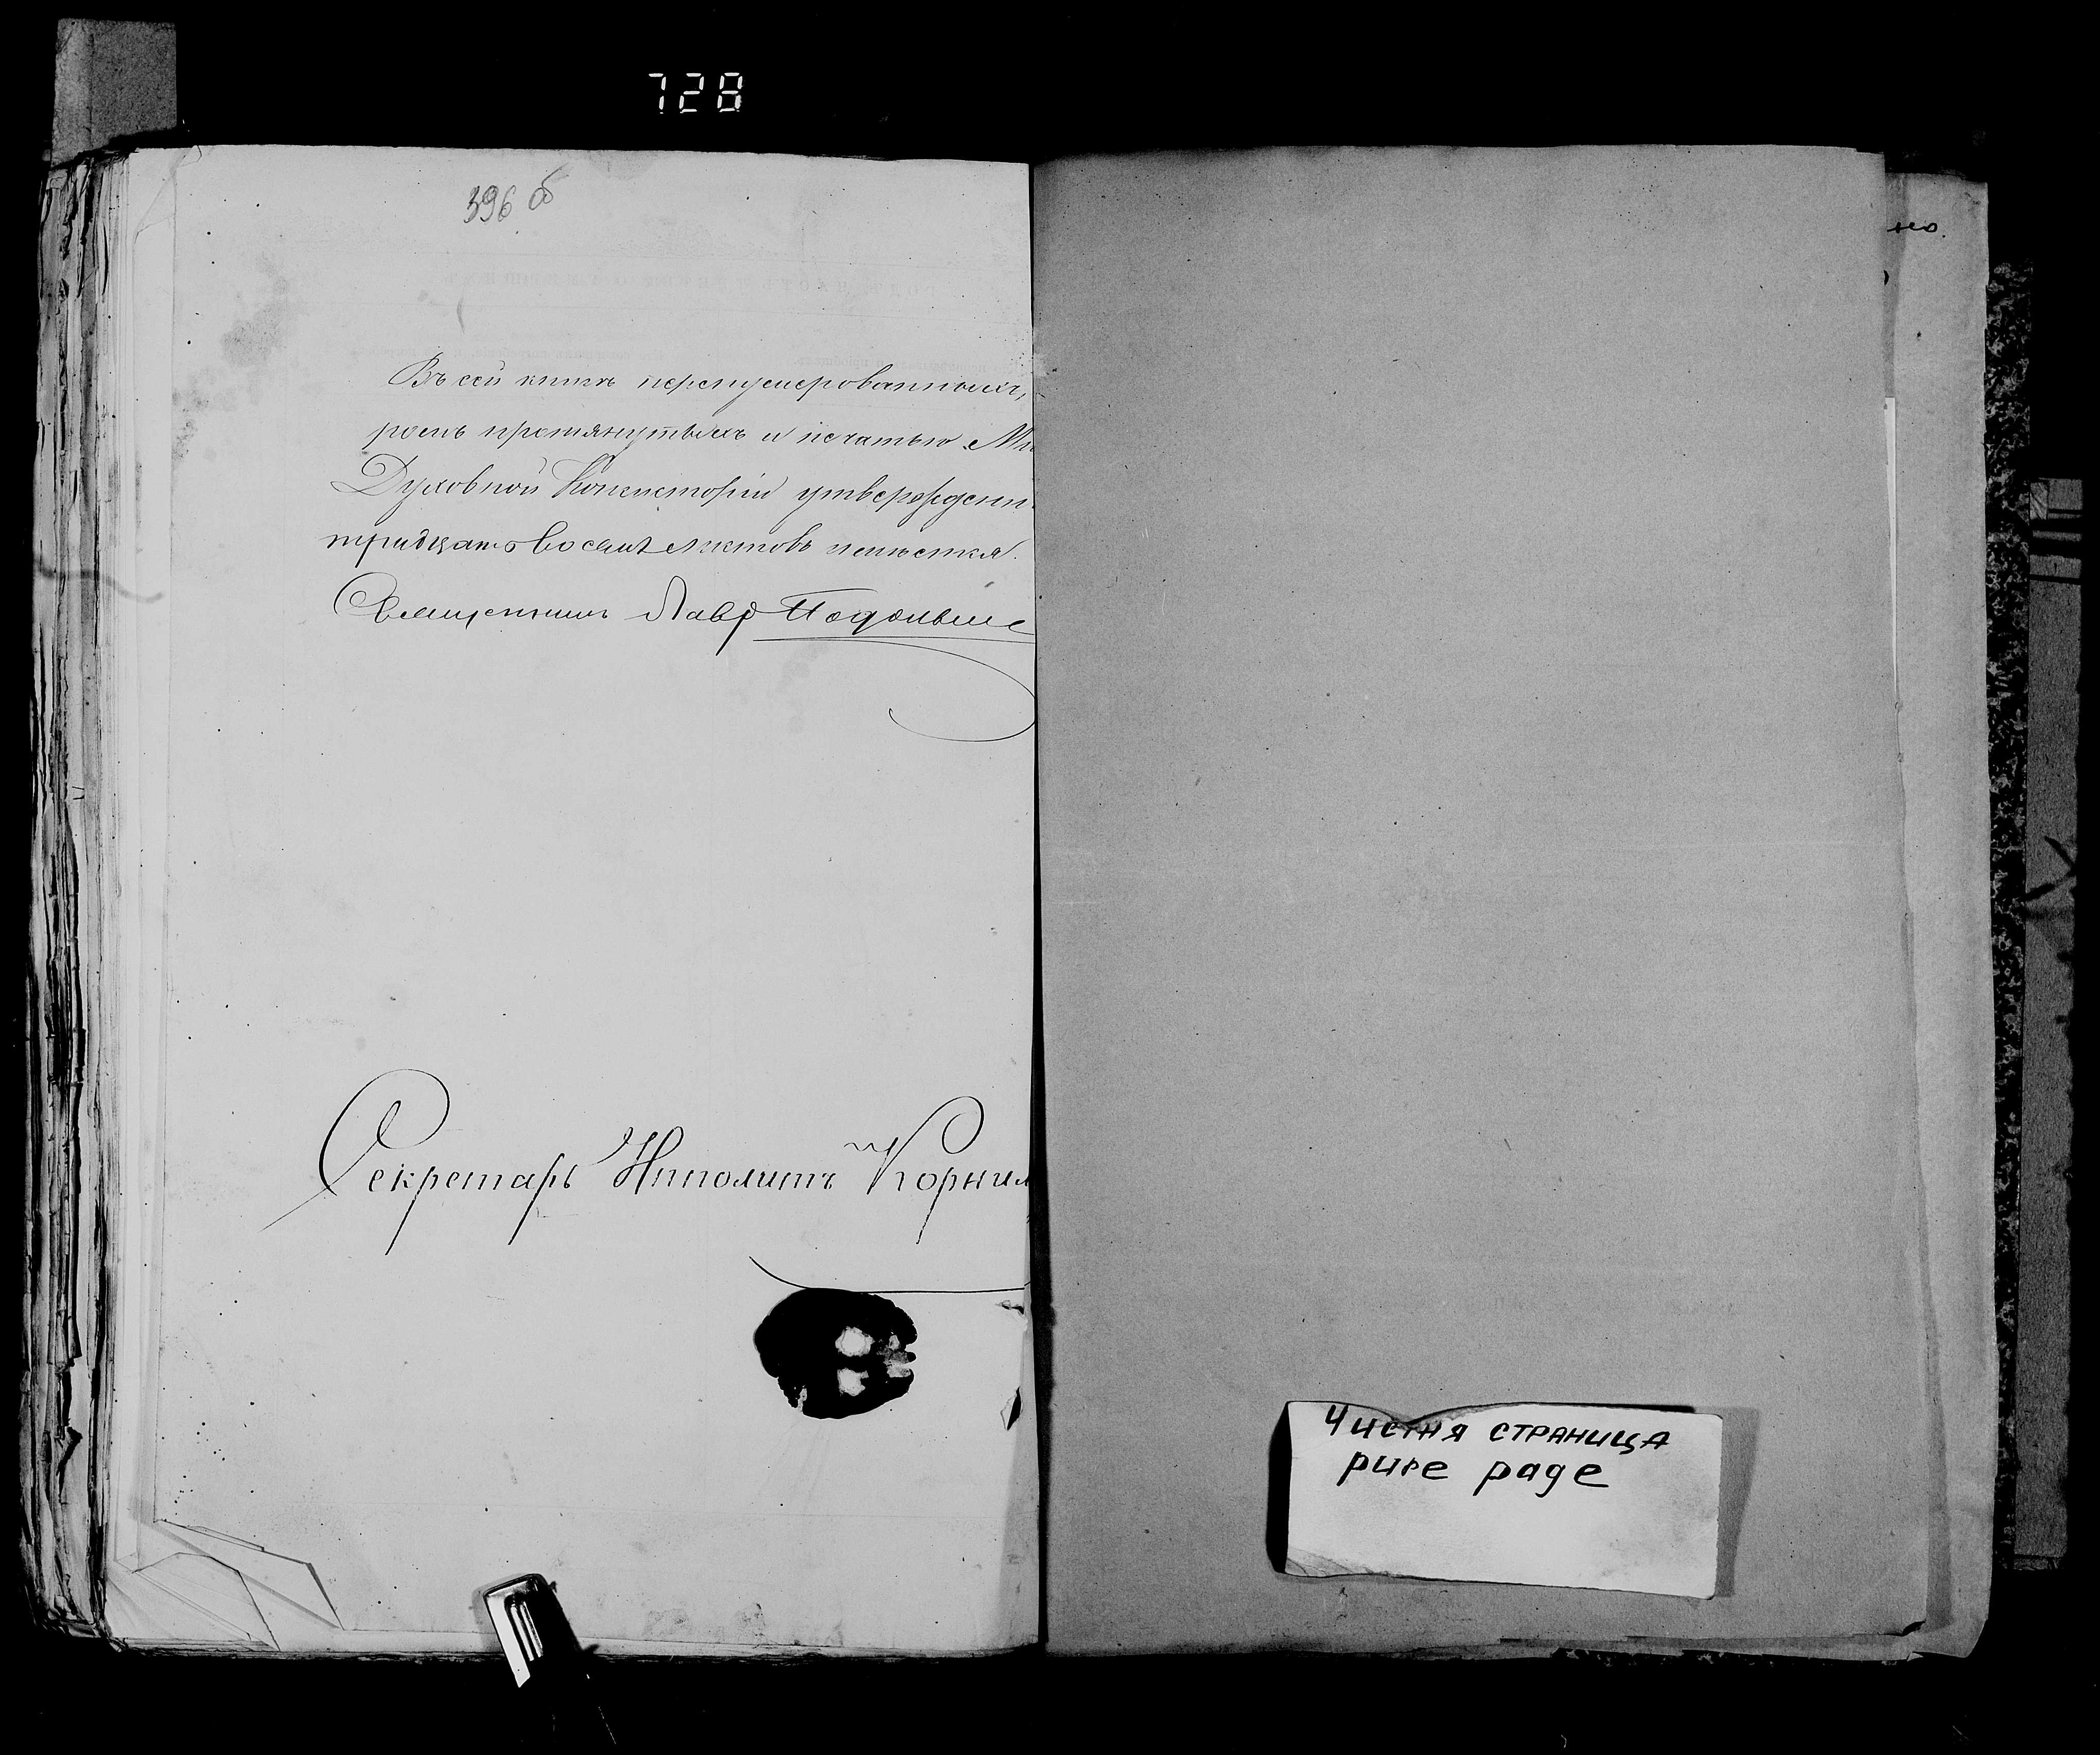 728
396 об
Въ сей книгѣ перенумерованныхъ,
ромъ протянутыхъ и печатью Ми
Духовной Консисторіи утвержденн
тридцать восемь листовъ имѣется.
Священникъ Лавр
Секретарь Ипполитъ Корнил
но.
Чистая страница
pure page